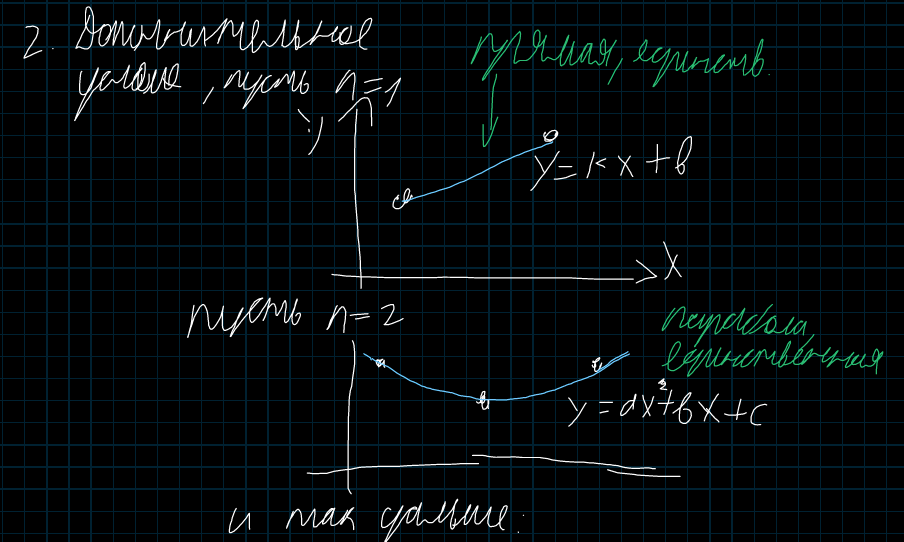 2. Дополнительное
условие, пусть n=1
прямая, единств.
y
y=kx+b
x
пусть n=2
парабола
единственная
y=ax²+bx+c
и так дальше: